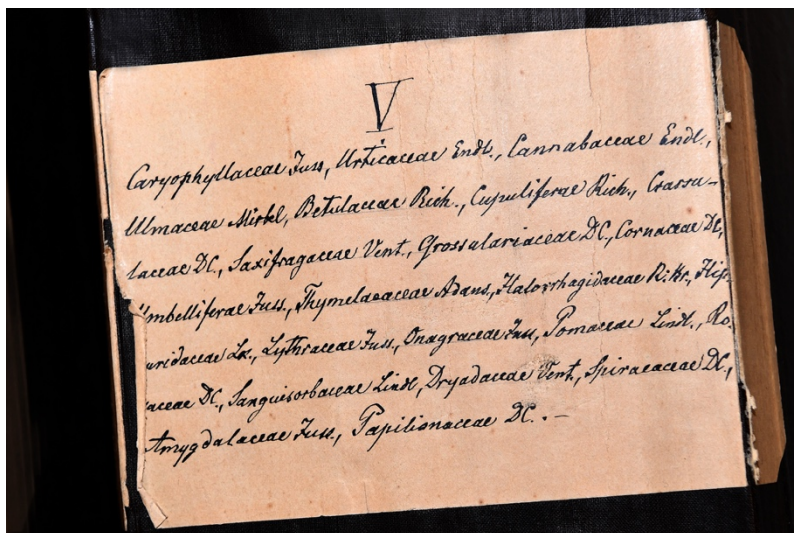 V
Caryophyllaceae Juss, Urticaceae Endl., Cannabaceae Endl.,
Ulmaceae Mirbel, Betulaceae Rich., Cupuliferae Rich., Crassu-
laceae DC., Saxifragaceae Vent., Grossulariaceae DC., Cornaceae DC,
Umbelliferae Juss., Thymelaeaceae Adans., Halorrhagidaceae R. Br., Hip-
uridaceae Lk., Lythraceae Juss., Onagraceae Juss, Pomaceae Lindl., Ro-
aceae DC., Sanguisorbaceae Lindl, Dryadaceae Vent., Spiraeaceae DC,
Amygdalaceae Juss., Papilionaceae DC. –